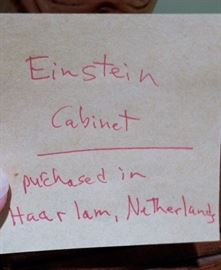 Einstein
Cabinet
puchased in
Haarlam, Netherlands